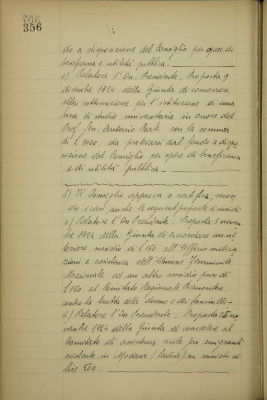 356
do a disposizione del Consiglio per opere di
beneficenza e utilità pubblica.
c) Relatore l'On. Presidente. Proposta 9
dicembre 1924 della Giunta di concorrere
alla sottoscrizione per l'istituzione di una
borsa di studio universitaria in onore del
Prof. Sen. Antonio Carle con la somma
di L. 1000, da prelevarsi dal fondo a dispo
sizione del Consiglio per opere di beneficenza
e di utilità pubblica.
5) Il Consiglio approva e ratifica, non
a) Relatore l'On. Presidente. Proposta
1924 della Giunta di accordare un ul
teriore sussidio di L. 150 all'Ufficio indica
zioni e assistenza dell'Unione Femminile
Nazionale ed un altro sussidio pure di
L. 150 al Comitato Regionale Piemontese
contro la tratta delle donne e dei fanciulli.
b) Relatore l'On. Presidente. Proposta
1924 della Giunta di concedere al
Comitato di assistenza civile per emigranti
esistente in Modane (Savoia) un sussidio di
lire 500.